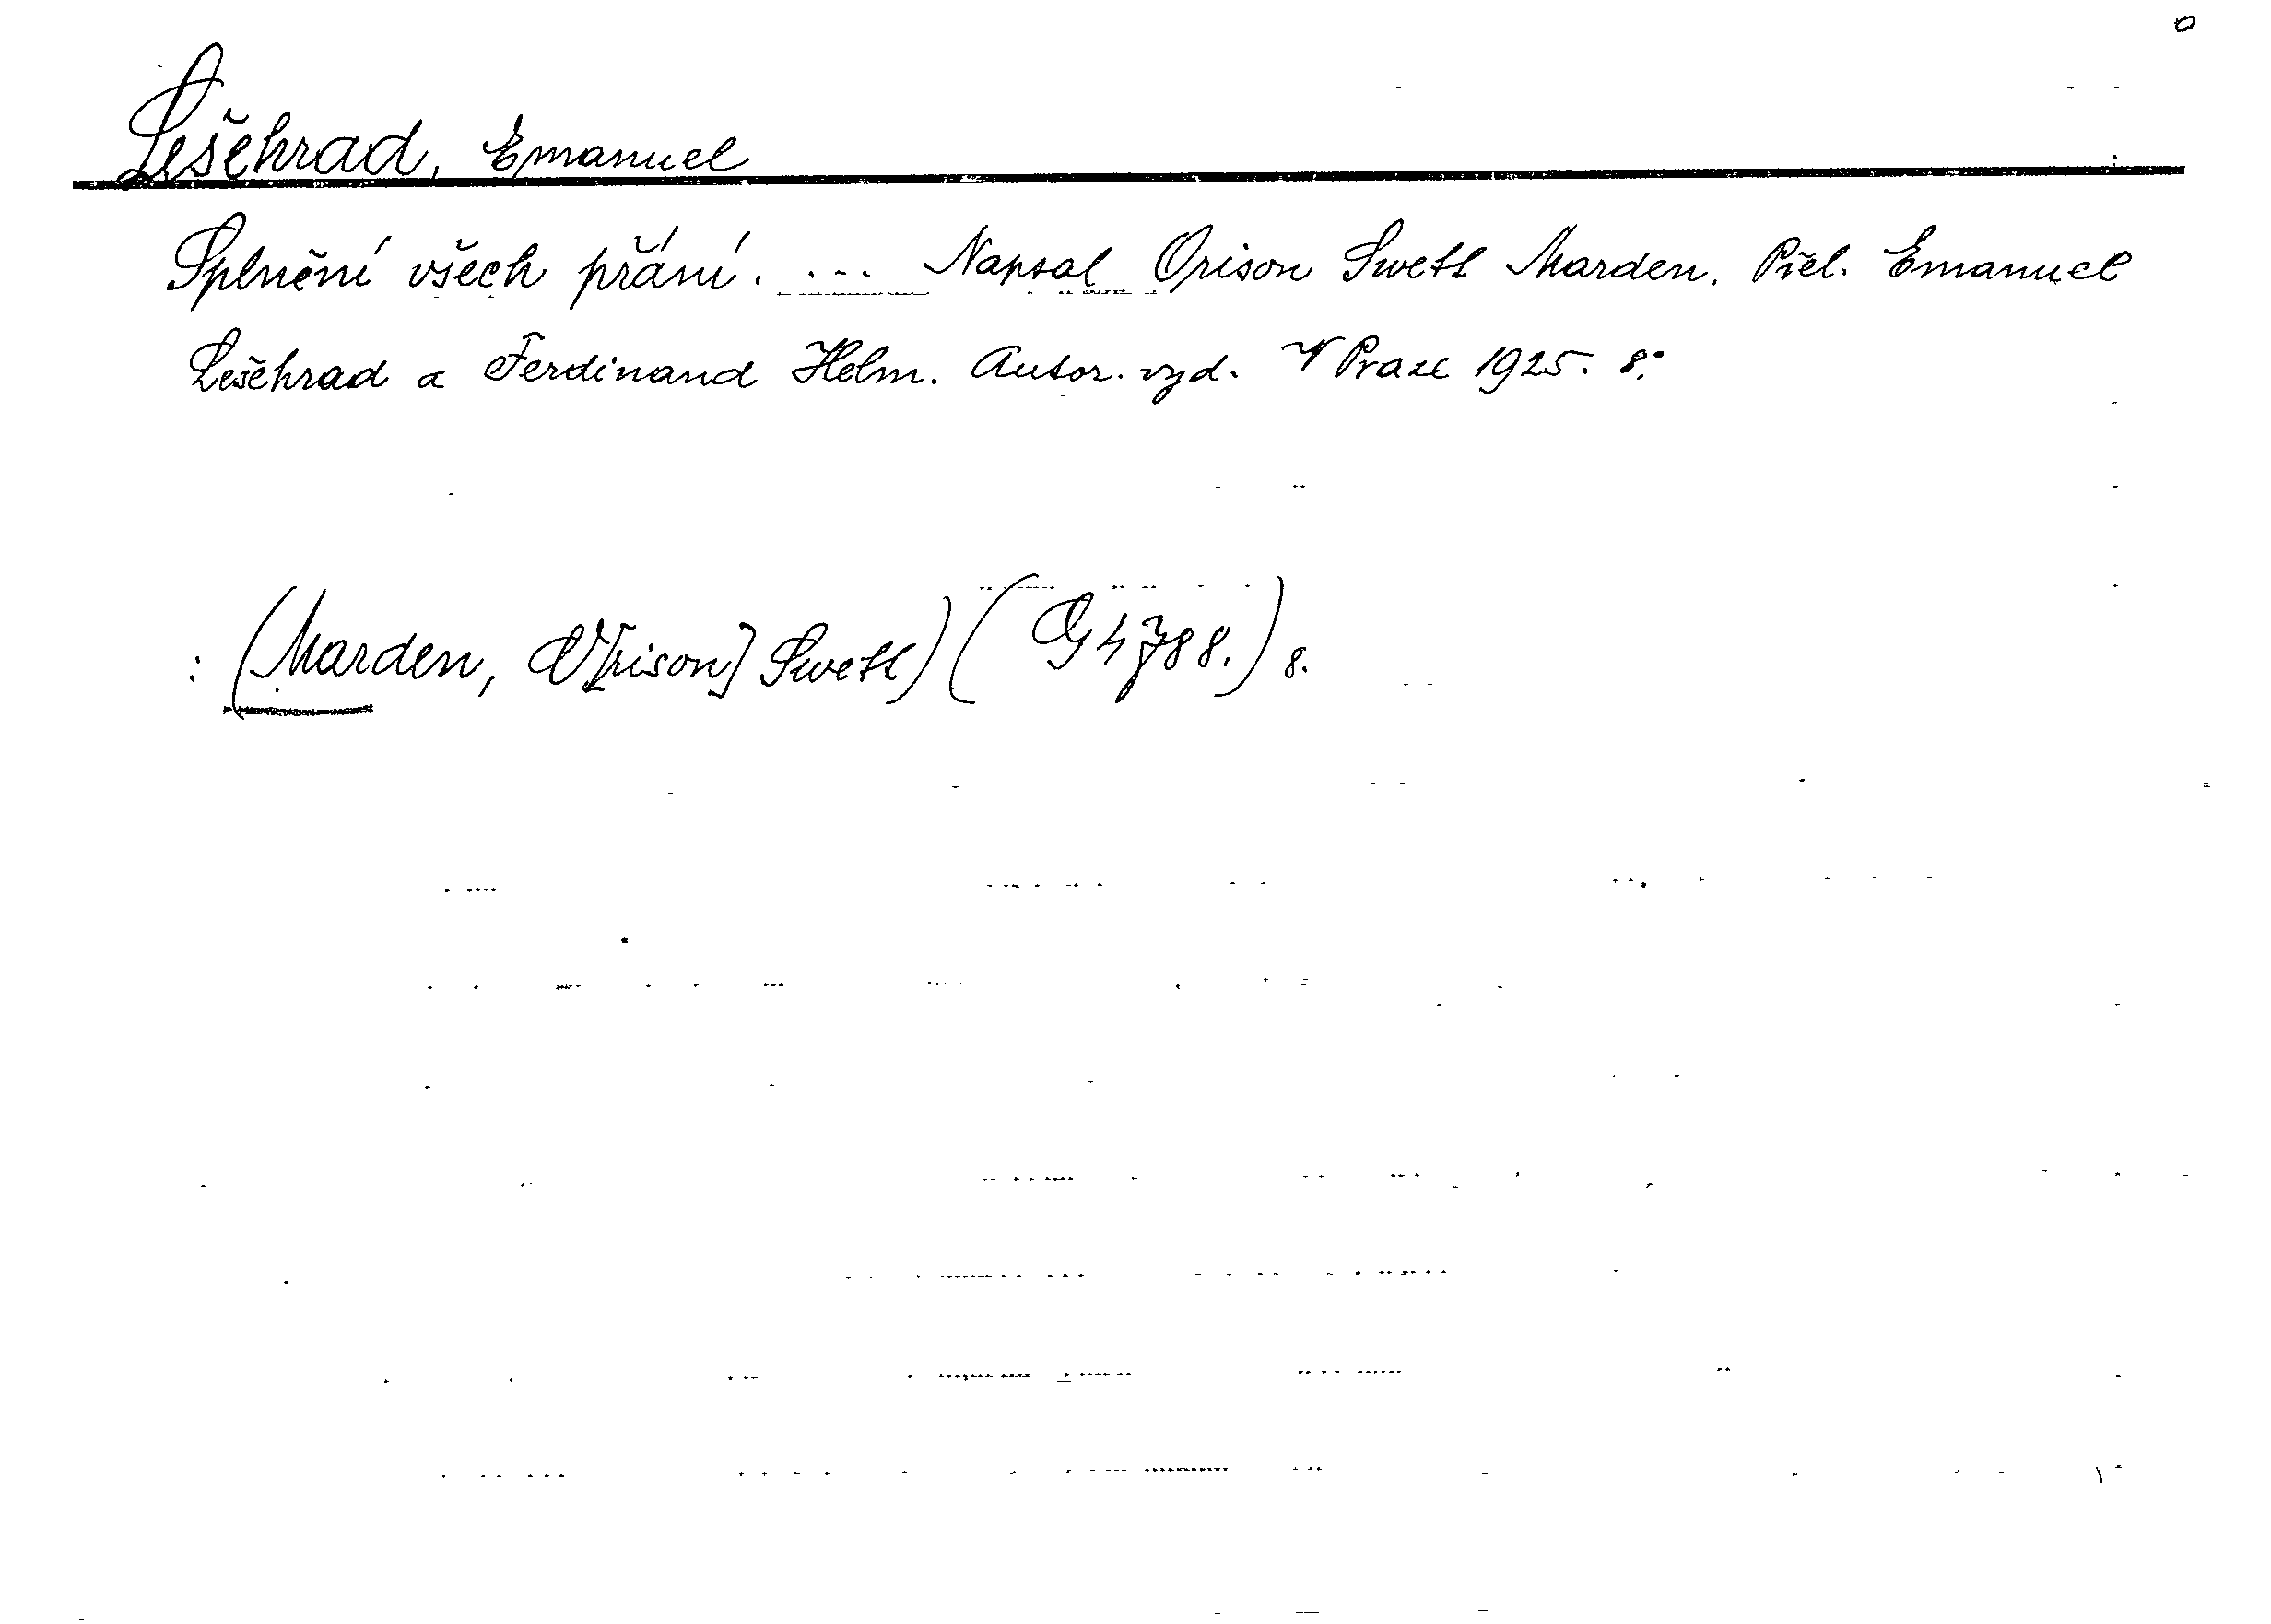 Lešehrad, Emanuel
Splnění všech přání. ... Napsal Orison Swett Marden. Přel. Emanuel
Lešehrad a Ferdinand Helm. Autor. vyd. V Praze 1925. 8°.
: (Marden, O[rison] Swett) (G 4788.) 8.